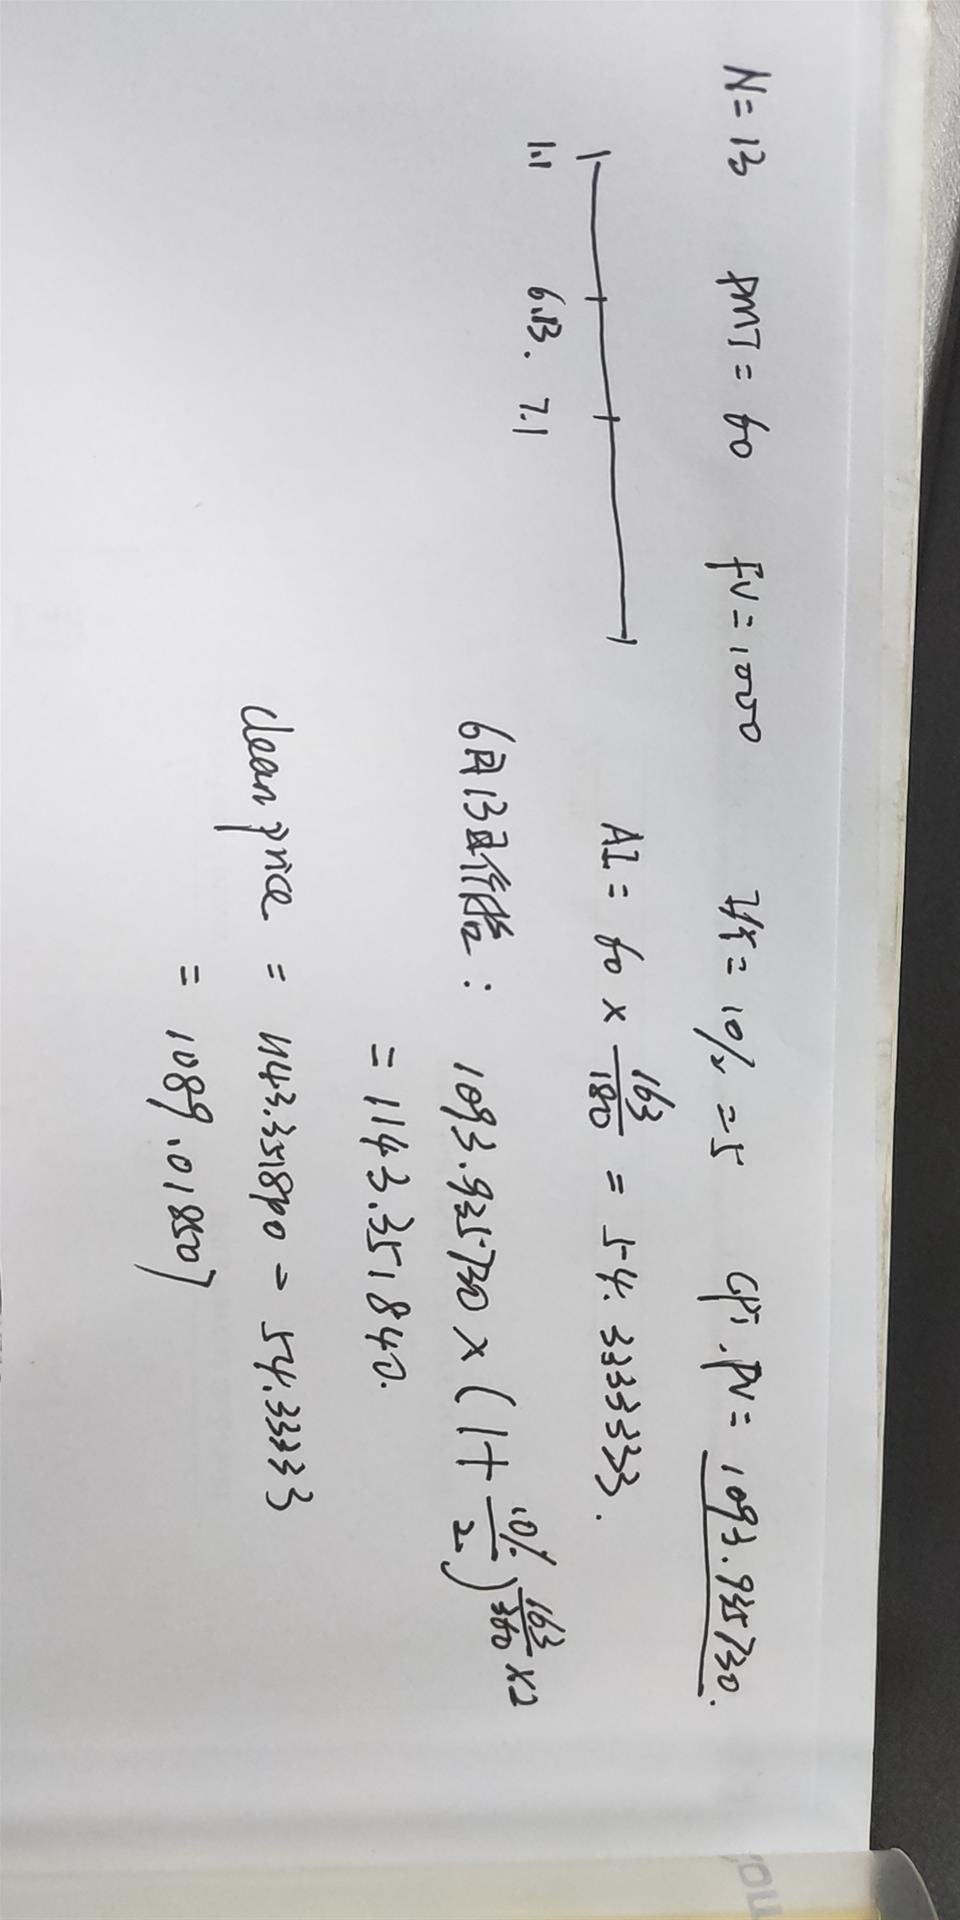 N=13 PMT=60 FV=1000 I/Y=10/2=5 CPT.PV=1093.935730.
1.1 6.13. 7.1
AI=60×163/180=54.3333333.
6月13日价格: 1093.935730×(1+10%/2)^(163/360×2)
=1143.351840.
Clean price = 1143.351840-54.33333
= 1089.018507
you